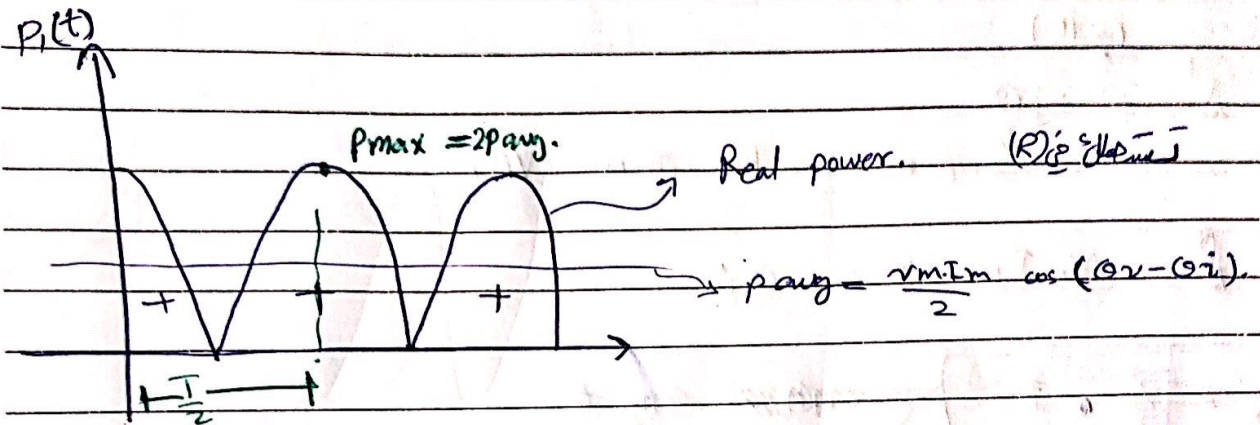 P₁(t)
Pmax = 2Pavg.
Real power. تستهلك في (R)
Pavg = Vm.Im/2 cos (θv - θi).
+ + +
T/2